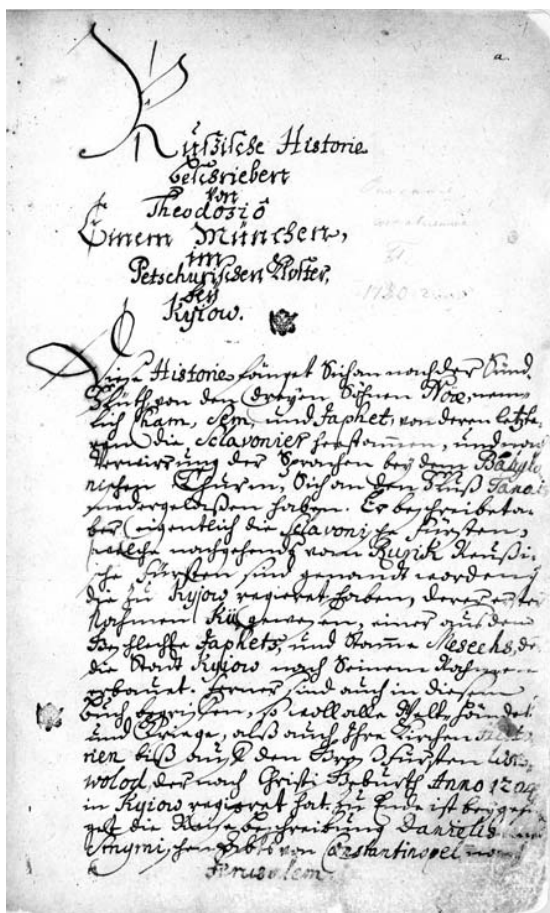 a.
Rußische Historie
beschrieben
von
Theodosio
Einem München,
im
Petschurischen Kloster,
bey
Kyiow.
Diese Historie fänget Sich an nach der Sünd-
Fluth, von den dreyen Söhnen Noæ, nem-
lich Cham, Sem, und Japhet, von deren letzte-
ren die Sclavonier herstammen, und nach
Verwirrung der Sprachen bey dem Babylo-
nischen Thurm, Sich an den Fluß Tanais
niedergelaßen haben. Er beschreibet a-
ber eigentlich die Sclavonische Fürsten,
welche nachgehends vom Rurik Reußi-
sche Fürsten sind genandt worden,
die zu Kyjow regieret haben, derer erster
Nahmen Kij gewesen, einer aus dem
Geschlechte Japhets, und Stamme Mesechs, der
die Stadt Kyjow nach Seinem Nahmen
erbauet. Ferner sind auch in diesem
Buch begriffen, so woll alle Welt-Händel
und Kriege, alß auch Ihre Kirchen
rien biß auf den Groß-Fürsten
wolod, der nach Christi Geburth Anno 1204
in Kyiow regieret hat. Zu Ende ist beygefü-
get die Reise-Beschreibung Danielis
von Constantinopel nach
Jerusalem.